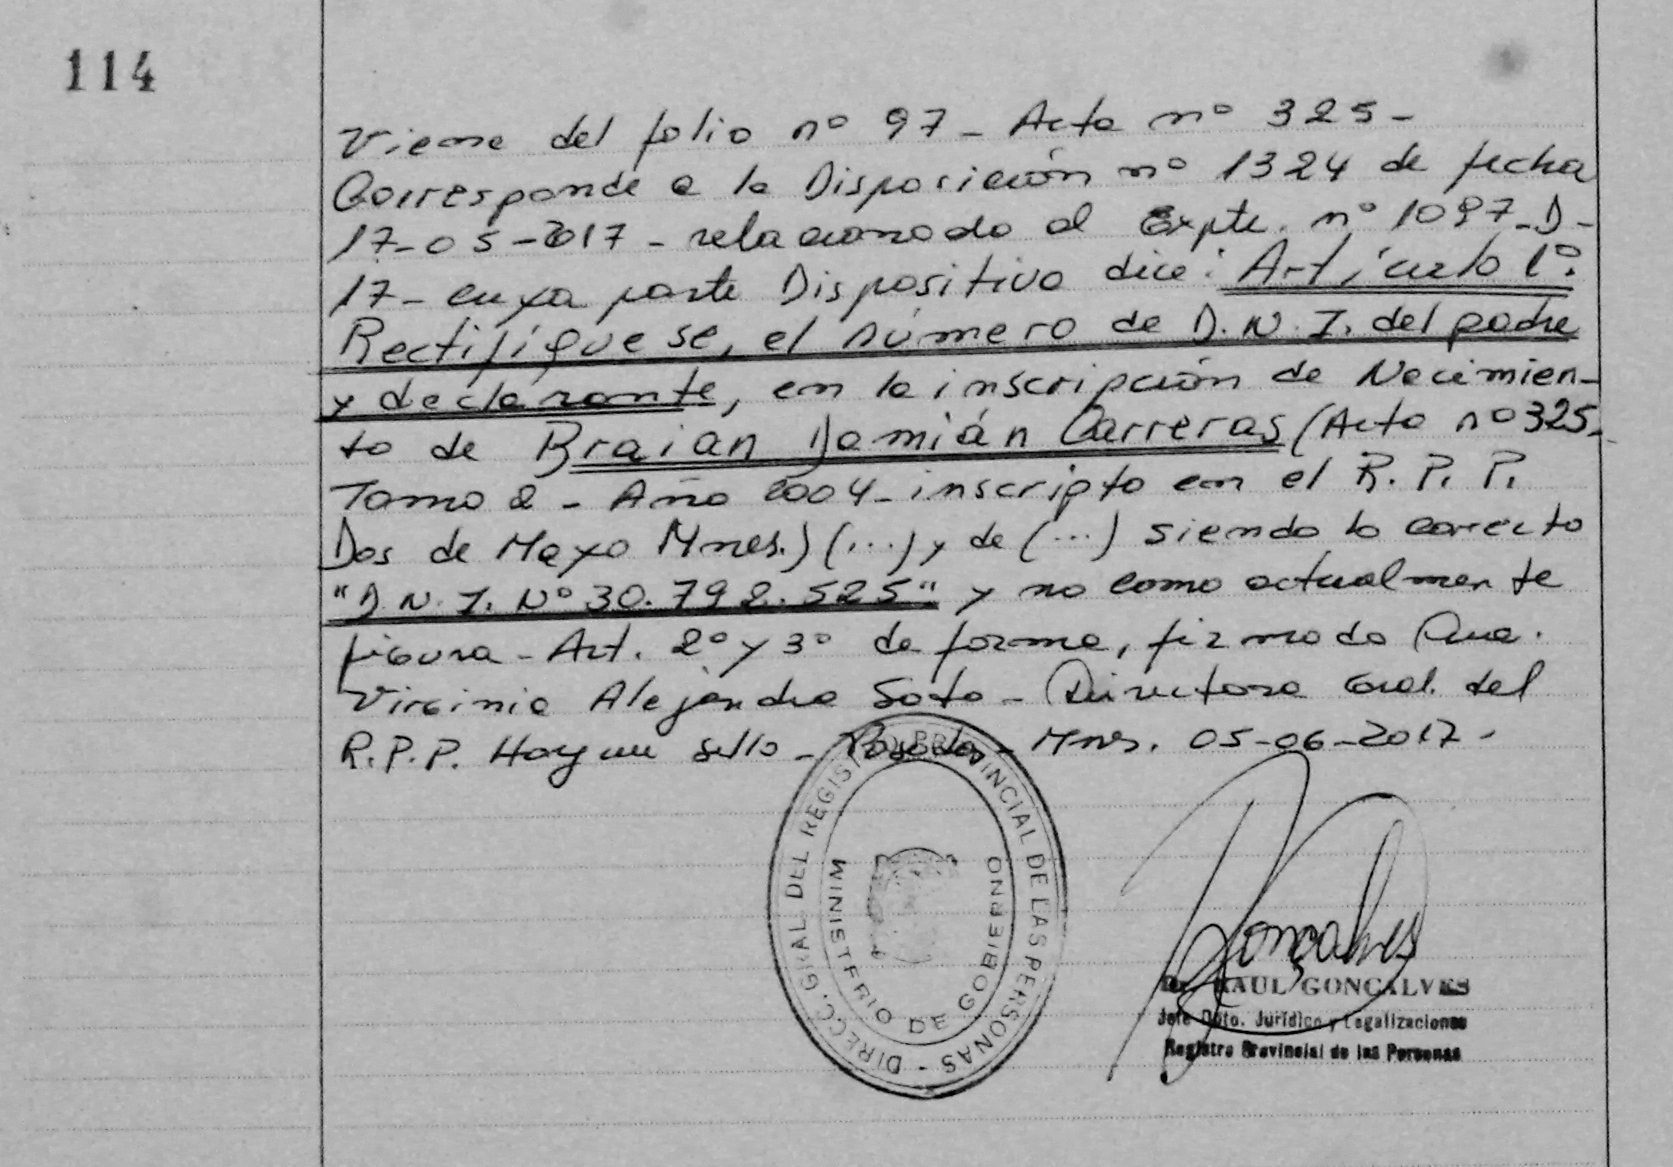 114
Viene del folio nº 97 - Acta nº 325 -
Corresponde a la Disposición nº 1324 de fecha
17-05-2017 - relacionado al Expte. nº 1097-D-
17 - cuya parte Dispositiva dice: Artículo 1º:
Rectifíquese, el número de D.N.I. del padre
y declarante, en la inscripción de Nacimien-
to de Braian Damián Carreras (Acta nº 325-
Tomo 2 - Año 2004 - inscripto en el R.P.P.
Dos de Mayo Mnes.) (...) y de (...) siendo lo correcto
"D.N.I. Nº 30.792.525" y no como actualmente
figura - Art. 2º y 3º de forma, firmado
Virginia Alejandra Soto - Directora Gral. del
R.P.P. Hay un sello - Posadas - Mnes. 05-06-2017 -
DIRECC. GRAL DEL REGISTRO PROVINCIAL DE LAS PERSONAS -
MINISTERIO DE GOBIERNO
Gonçalves
RAUL GONCALVES
Jefe Dpto. Jurídico y Legalizaciones
Registro Provincial de las Personas